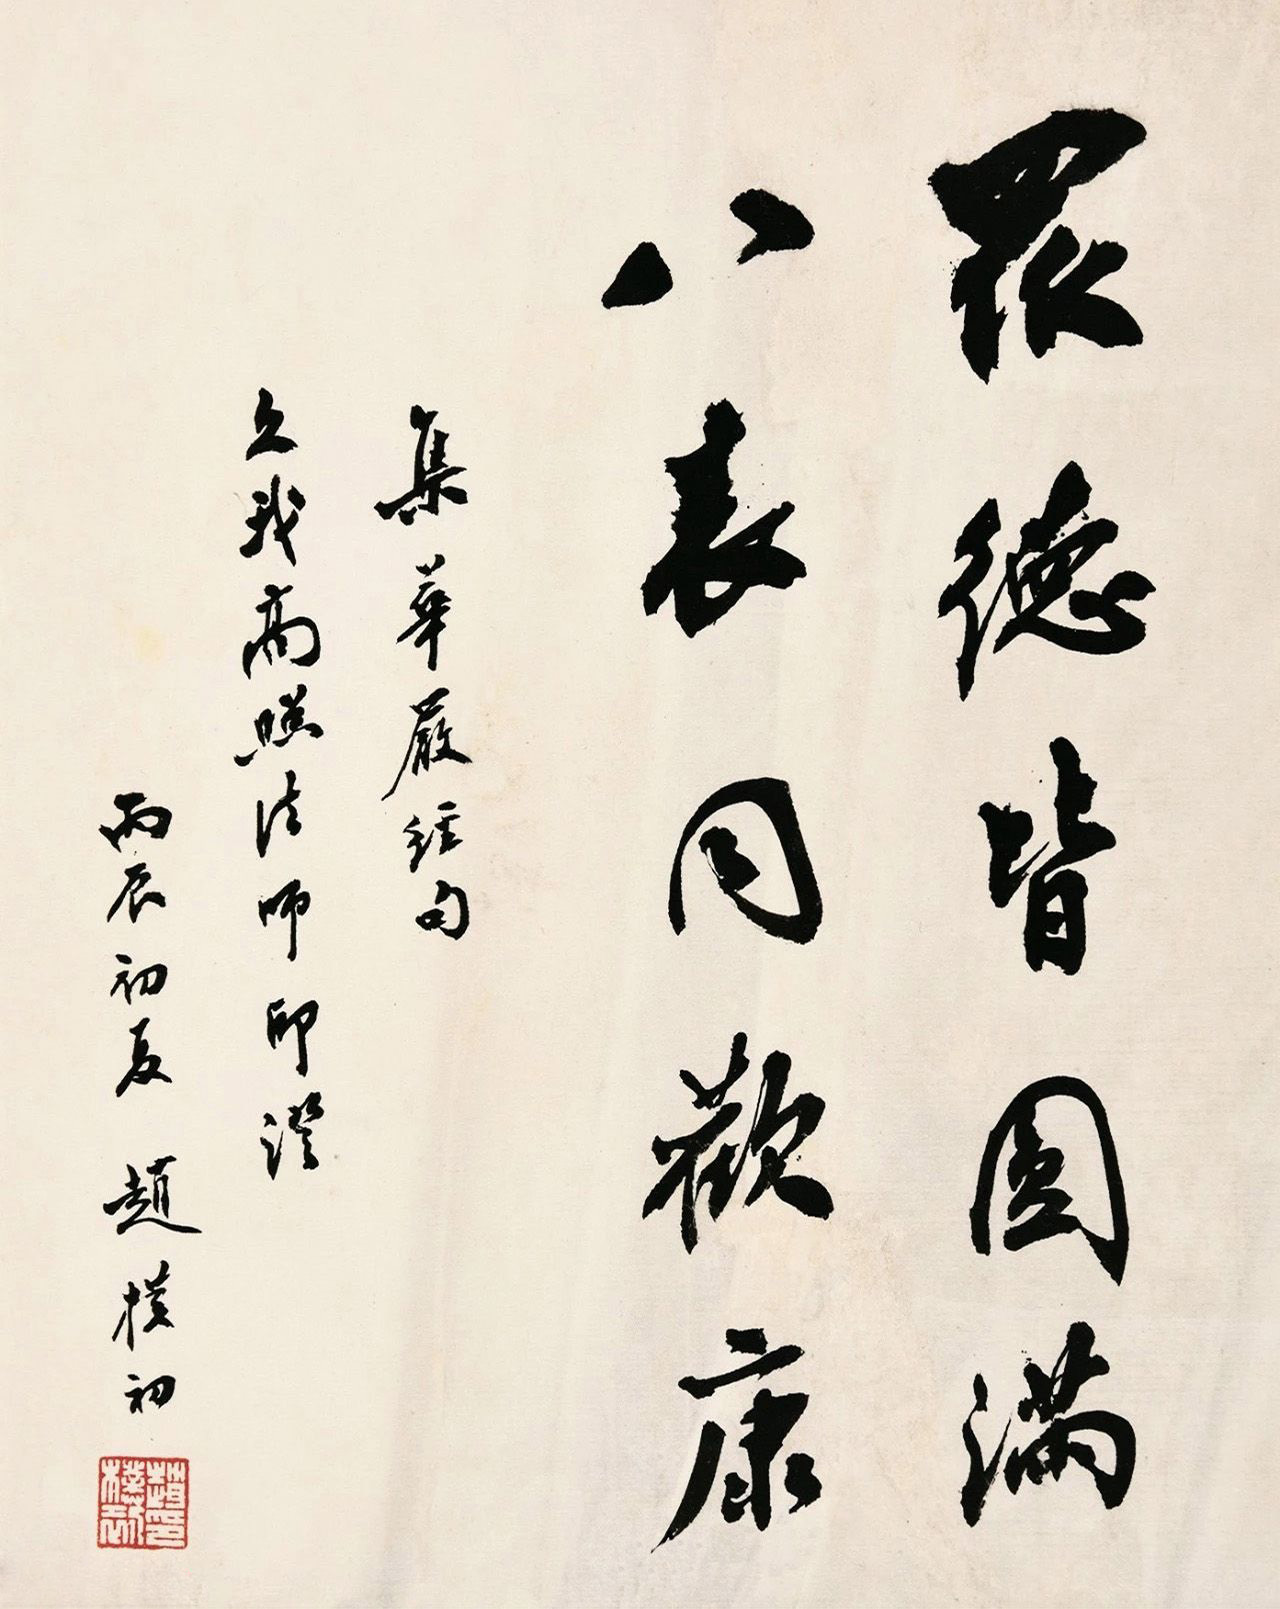 眾德皆圓滿
八表同歡康
集華嚴經句
久我高照法師印證
丙辰初夏 趙樸初
趙樸初印